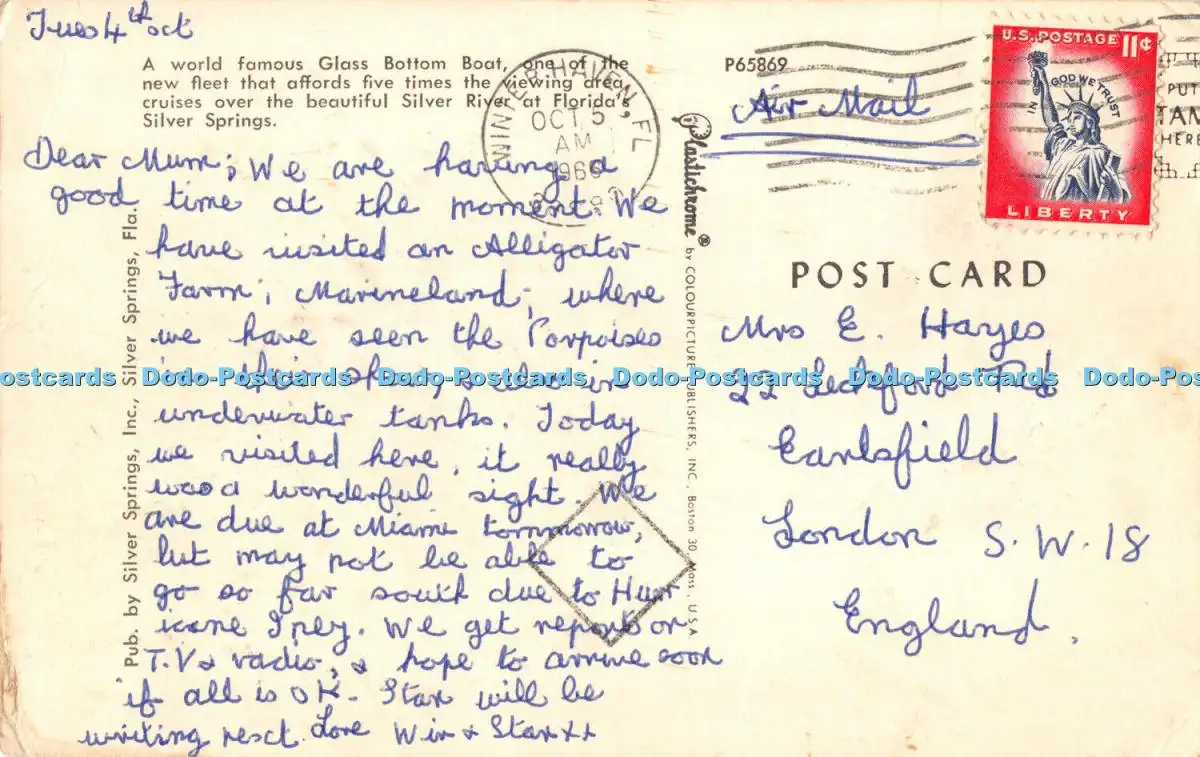 Tues 4th oct
A world famous Glass Bottom Boat, one of the
new fleet that affords five times the viewing area,
cruises over the beautiful Silver River at Florida's
Silver Springs.
Dear Mum; We are having a
good time at the moment. We
have visited an Alligator
Farm, Marineland, where
we have seen the Porpoises
in their show, & also in
underwater tanks. Today
we visited here, it really
was a wonderful sight. We
are due at Miami tommorrow,
but may not be able to
go so far south due to Hurr
icane Inez. We get reports on
T.V & radio, & hope to arrive soon
if all is OK. Stan will be
writing next. Love Win & Stan xx
Pub. by Silver Springs, Inc., Silver Springs, Fla.
WINTER HAVEN, FL
OCT 5
AM
1966
P65869
Air Mail
U.S. POSTAGE 11¢
IN GOD WE TRUST
LIBERTY
PUT
HERE
Plastichrome® by COLOURPICTURE PUBLISHERS, INC., Boston 30, Mass., U.S.A.
POST CARD
Mrs E. Hayes
22 Rd
Earlsfield
London S.W.18
England.
ostcards Dodo-Postcards Dodo-Postcards Dodo-Postcards Dodo-Postcards Dodo-Postc